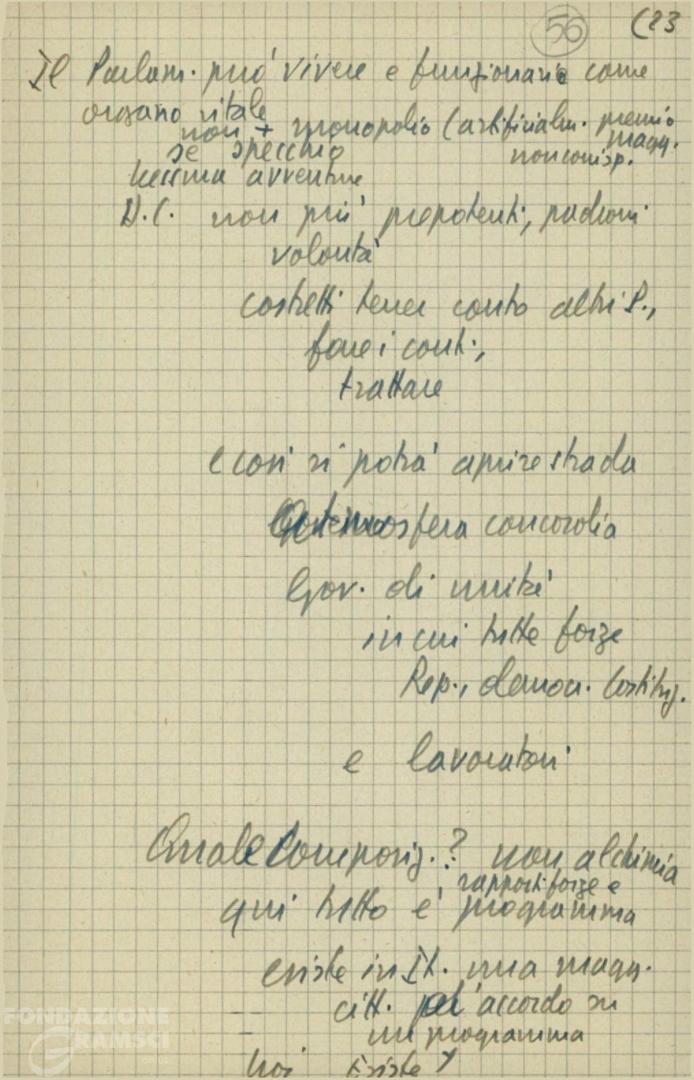 56 (23
Il Parlam. può vivere e funzionare come
organo vitale
non + monopolio (artifizialm. premio
magg.
se specchio noncorrisp.
nessuna avventura
D.C. non più prepotenti, padroni
volontà
costretti tener conto altri P.,
fare i conti,
trattare
e così si potrà aprire strada
atmosfera concordia
Gov. di unità
in cui tutte forze
Rep., democr. Costituz.
e lavoratori
Quale Composiz.? non alchimia
rapporti forze e
qui tutto è programma
esiste in It. una magg.
citt. per l'accordo su
un programma
Noi Esiste
FONDAZIONE
GRAMSCI